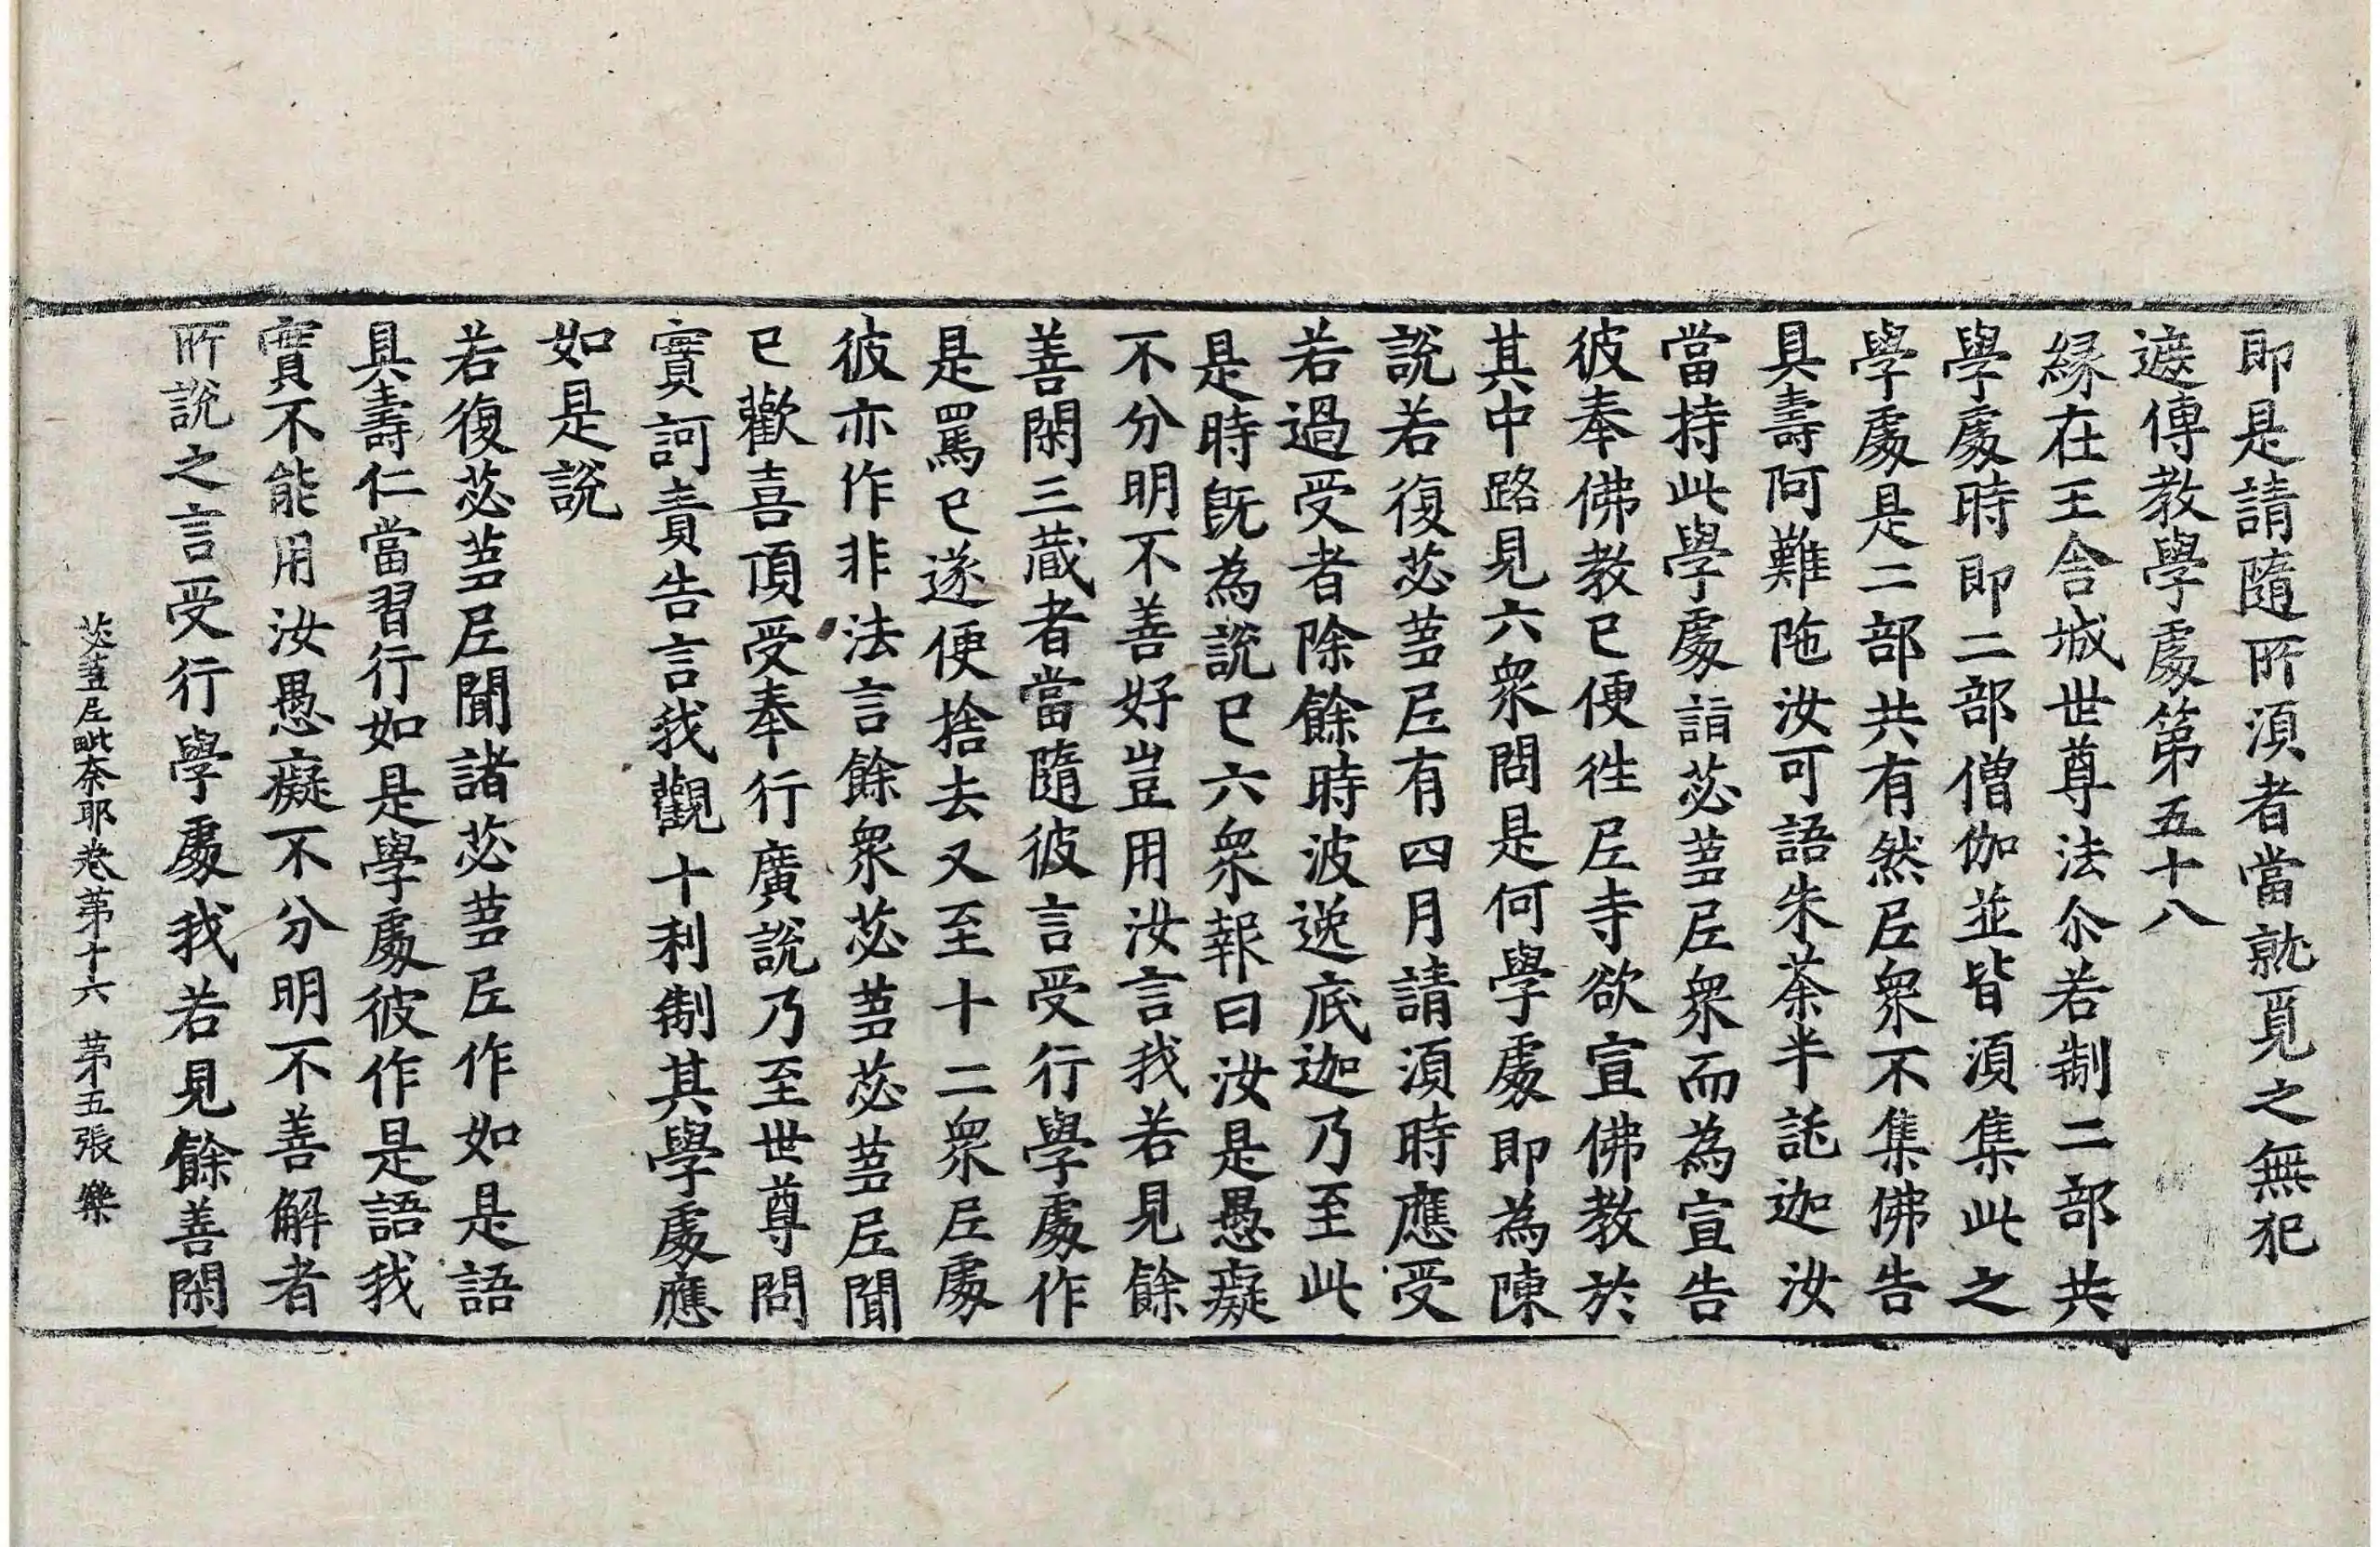 即是請隨所湏者當就覓之無犯
遮傳教學處第五十八
緣在王舍城世尊法尒若制二部共
學處時即二部僧伽並皆湏集此之
學處是二部共有然尼衆不集佛告
具壽阿難陁汝可語朱荼半託迦汝
當持此學處詣苾蒭尼衆而為宣告
彼奉佛教已便往尼寺欲宣佛教於
其中路見六衆問是何學處即為陳
說若復苾蒭尼有四月請湏時應受
若過受者除餘時波逸底迦乃至此
是時旣為說已六衆報曰汝是愚癡
不分明不善好豈用汝言我若見餘
善閑三藏者當隨彼言受行學處作
是罵已遂便捨去又至十二衆尼處
彼亦作非法言餘衆苾蒭苾蒭尼聞
已歡喜頂受奉行廣說乃至世尊問
實訶責告言我觀十利制其學處應
如是說
若復苾蒭尼聞諸苾蒭尼作如是語
具壽仁當習行如是學處彼作是語我
實不能用汝愚癡不分明不善解者
所說之言受行學處我若見餘善閑
苾蒭尼毗奈耶卷第十六　第五張　樂